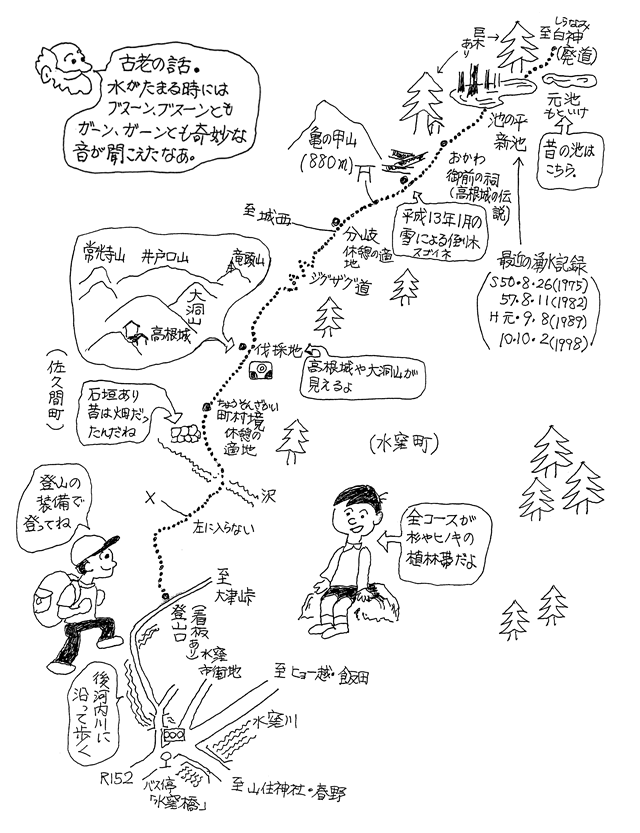 古老の話。
水がたまる時には
ブスーン、ブスーンとも
ガーン、ガーンとも奇妙な
音が聞こえたなあ。
巨木
あり
しらなみ
至白神
(廃道)
元池
もといけ
昔の池は
こちら。
池の平
新池
亀の甲山
(880m)
おかわ
御前の祠
(高根城の伝
説)
平成13年1月の
雪による倒木
スゴイネ
至城西
分岐
休憩の適
地
ジグザグ道
最近の湧水記録
S50・8・26(1975)
57・8・11(1982)
H元・9・8(1989)
10・10・2(1998)
常光寺山
井戸口山
竜頭山
大洞山
高根城
伐採地
高根城や大洞山が
見えるよ
(佐久間町)
石垣あり
昔は畑だっ
たんだね
ちょうそんざかい
町村境
休憩の
適地
(水窪町)
沢
X
左に入らない
登山の
装備で
登ってね
全コースが
杉やヒノキの
植林帯だよ
至
大津峠
登山口
(看板あり)
水窪
市街地
至ヒョー越・飯田
後河内川に
沿って歩く
水窪川
R152
バス停
「水窪橋」
至山住神社・春野